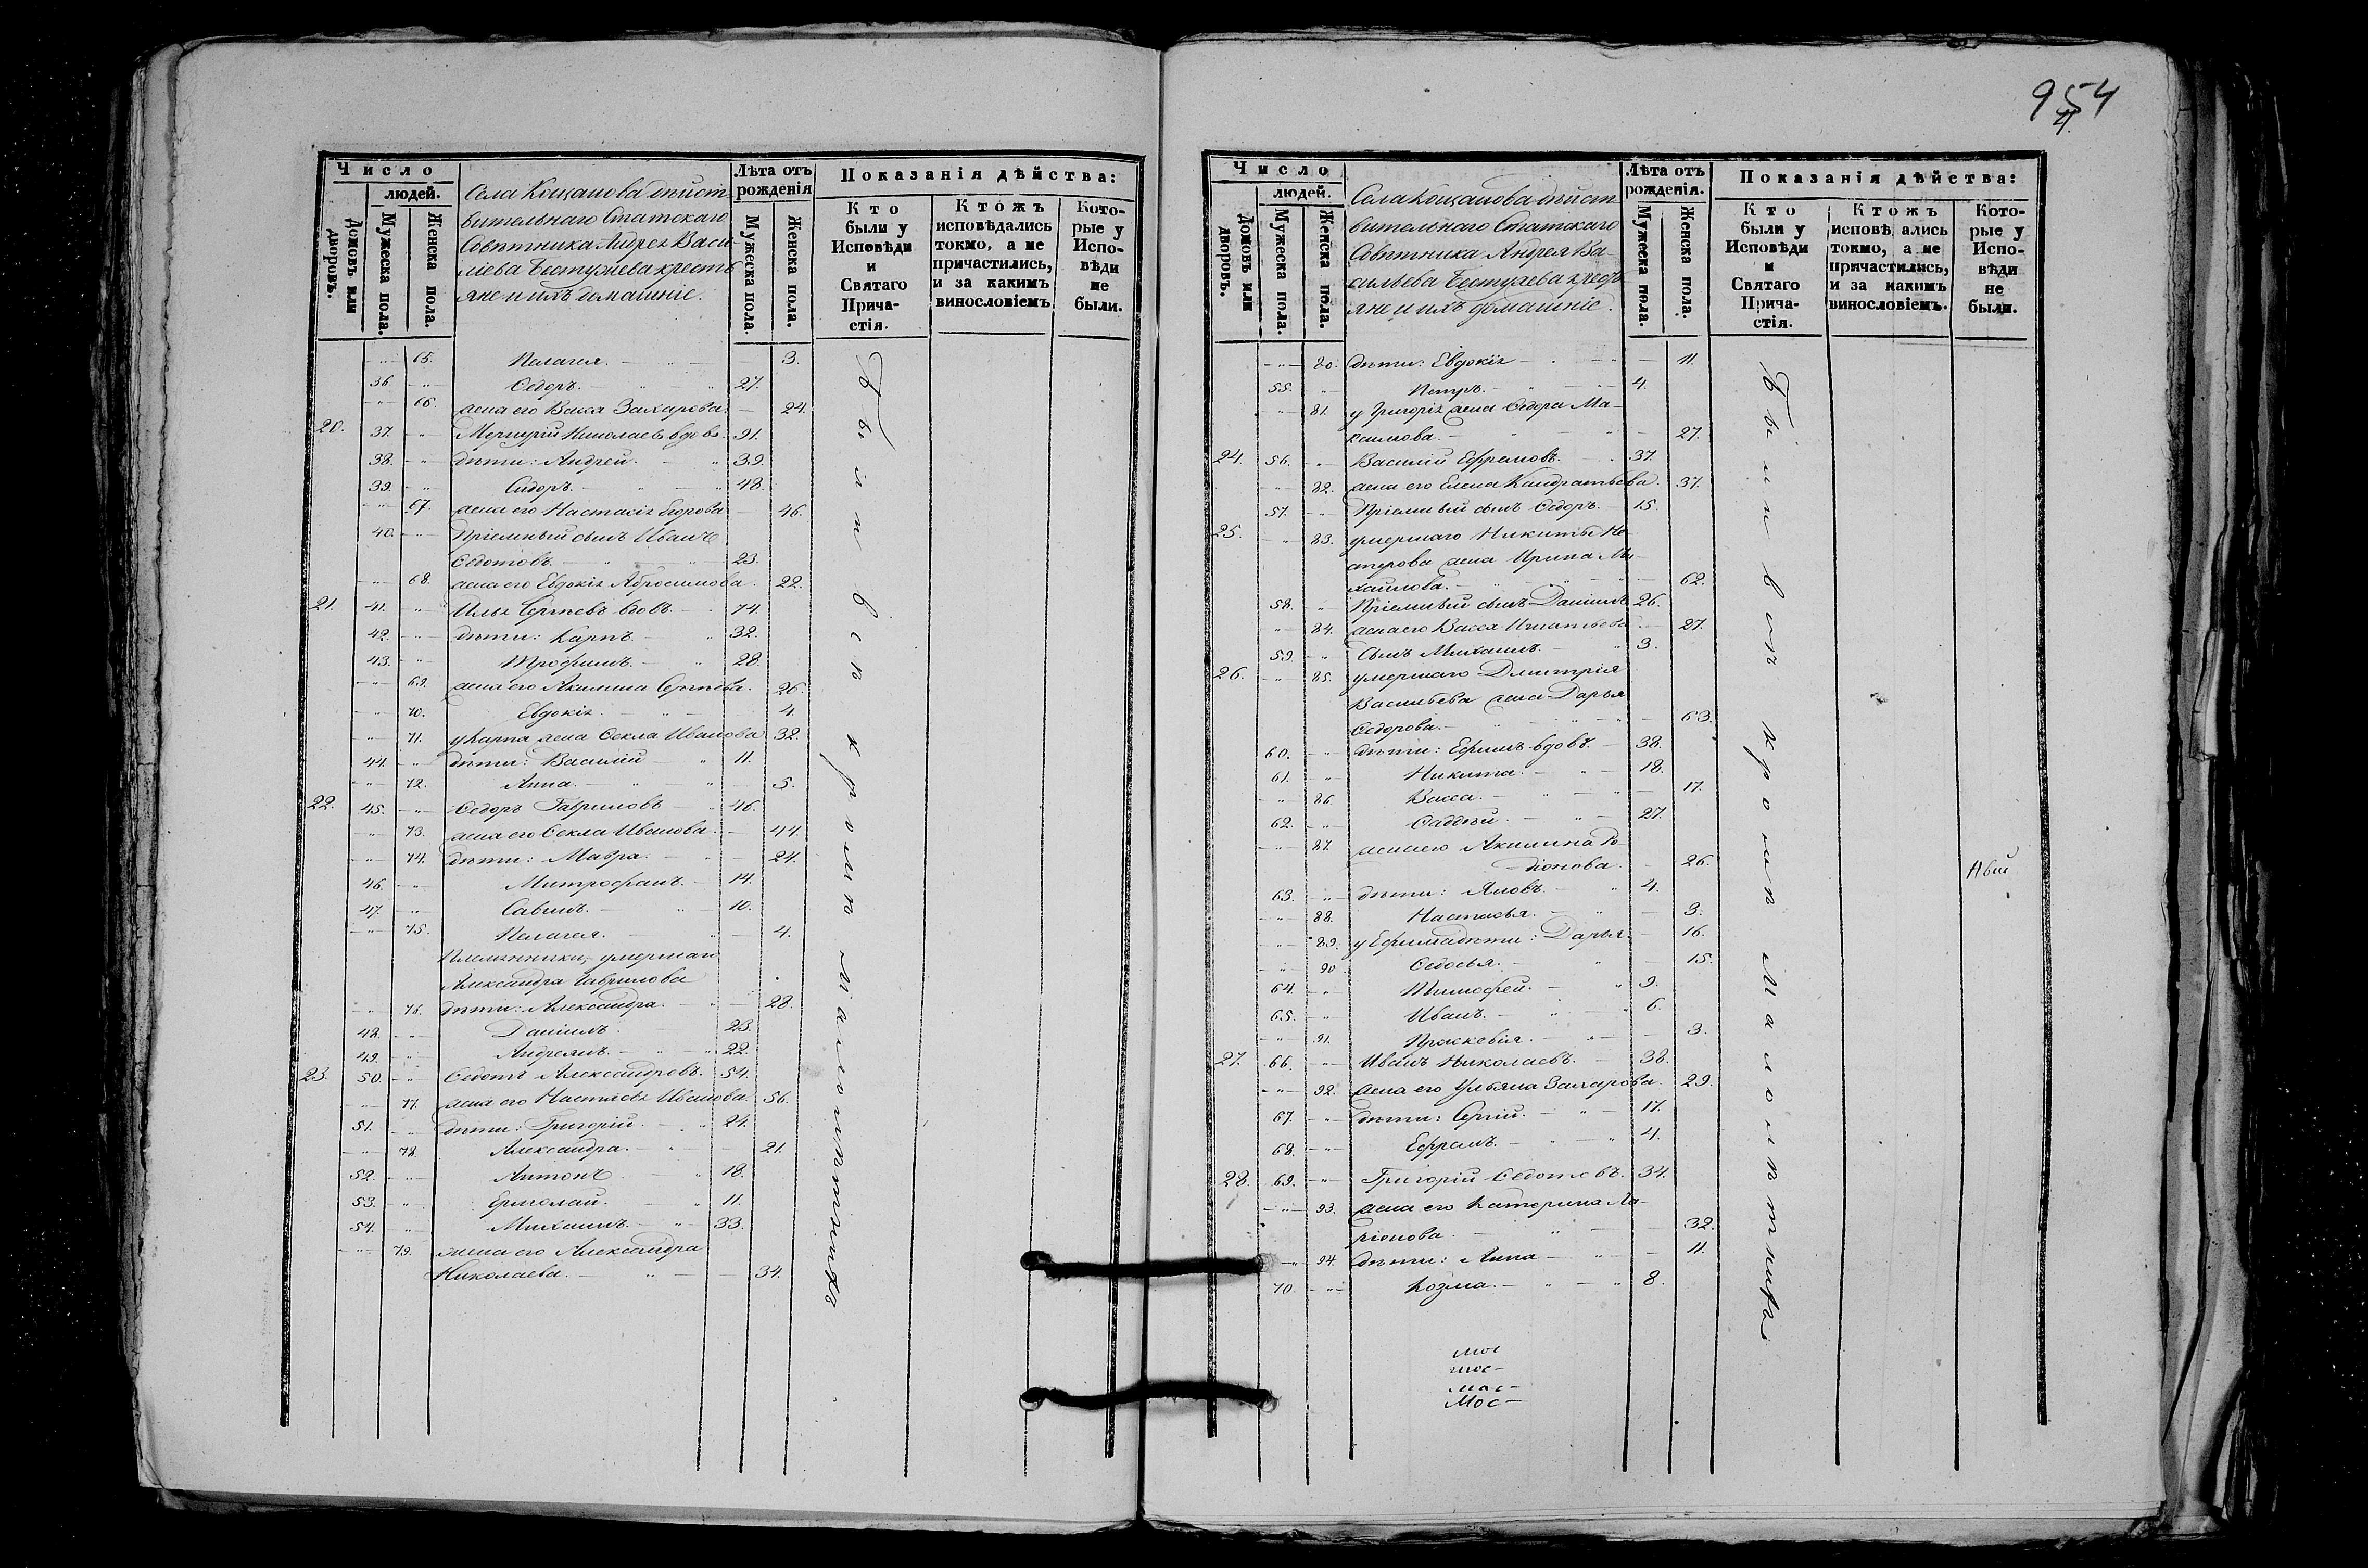 954
4.
Число
людей.
Домовъ или дворовъ.
Мужеска пола.
Женска пола.
Села Кощанова дѣйст
вительнаго Статскаго
Совѣтника Андрея Васи-
льева Бестужева кресть
яне и ихъ домашніе.
Лѣта отъ рожденія
Мужеска пола.
Женска пола.
Показанія дѣйства:
Кто были у Исповѣди и Святаго Прича-стія.
Ктожъ исповѣдались токмо, а не причастились, и за какимъ винословіемъ
Кото-рые у Испо-вѣди не были.
65. Пелагея. 3.
36 Ѳедоръ. 27.
66. жена его Васса Захарова. 24.
20. 37. Меркурій Николаевъ вдовъ. 91.
38. дѣти: Андрей. 39.
39. Сидоръ. 48.
67. жена его Настасія Егорова 46.
40. Пріемный сынъ Иванъ
Ѳедотовъ. 23.
68. жена его Евдокія Абросимова. 22.
21. 41. Илья Сергѣевъ вдовъ 74.
42. дѣти: Карпъ 32.
43. Трофимъ. 28.
69. жена его Акилина Сергѣева. 26.
70. Евдокія. 4.
71. у Карпа жена Ѳекла Иванова 32.
44. дѣти: Василій 11.
72. Анна. 5.
22. 45. Ѳедоръ Гавриловъ 46.
73. жена его Ѳекла Иванова. 44.
74. дѣти: Мавра. 24.
46. Митрофанъ. 14.
47. Савинъ. 10.
75. Пелагея. 4.
Племянники, умершаго
Александра Гаврилова
76. дѣти: Александра. 28.
48. Даніилъ. 23.
49. Андреянъ. 22.
23. 50. Ѳедотъ Александровъ. 54.
77. жена его Настасья Иванова. 56.
51. дѣти: Григорій. 24.
78. Александра. 21.
52. Антонъ 18.
53. Ермолай. 11.
54. Михаилъ. 33.
79. жена его Александра
Николаева. 34.
Были вси кромѣ малолѣтнихъ
Число
людей.
Домовъ или дворовъ.
Мужеска пола.
Женска пола.
Села Кощанова дѣйст
вительнаго Статскаго
Совѣтника Андрея Ва-
сильева Бестужева кресть
яне и ихъ домашніе.
Лѣта отъ рожденія.
Мужеска пола.
Женска пола.
Показанія дѣйства:
Кто были у Исповѣди и Святаго Прича-стія.
Ктожъ исповѣдались токмо, а не причастились, и за какимъ винословіемъ.
Кото-рые у Испо-вѣди не были.
80. дѣти: Евдокія 11.
55. Петръ. 4.
81. у Григорія жена Ѳедора Ма-
ксимова. 27.
24. 56. Василій Ефремовъ. 37.
82. жена его Елена Кандратьева. 37.
57. Пріемный сынъ Ѳедоръ. 15.
25. 83. умершаго Никиты Не
стерова жена Ирина Ми-
хайлова. 62.
58. Пріемный сынъ Даніилъ 26.
84. жена его Васса Игнатьева. 27.
59. Сынъ Михаилъ. 3.
26. 85. умершаго Дмитрія
Васильева жена Дарья
Ѳедорова. 63.
60. дѣти: Ефимъ вдовъ. 38.
61. Никита. 18.
86. Васса. 17.
62. Ѳаддѣй. 27.
87. жена его Акилина Ро-
діонова. 26.
63. дѣти: Яковъ. 4.
88. Настасья. 3.
89. у Ефима дѣти: Дарья. 16.
90 Ѳедосья. 15.
64. Тимофей. 9.
65. Иванъ. 6.
91. Праскевія. 3.
27. 66. Иванъ Николаевъ. 38.
92. жена его Ульяна Захарова. 29.
67. дѣти: Сергій. 17.
68. Ефремъ. 4.
28. 69. Григорій Ѳедотовъ. 34.
93. жена его Катерина Ла-
ріонова. 32.
94. дѣти: Анна 11.
70. Козма. 8.
Были вси кромѣ Малолѣтнихъ
мос
мос-
мос-
Мос-